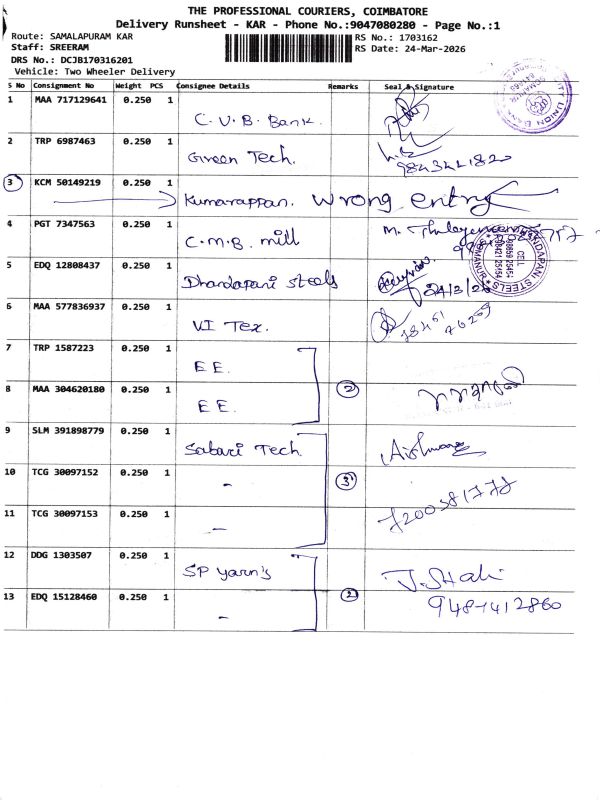 THE PROFESSIONAL COURIERS, COIMBATORE
Delivery Runsheet - KAR - Phone No.:9047080280 - Page No.:1
Route: SAMALAPURAM KAR
RS No.: 1703162
Staff: SREERAM
RS Date: 24-Mar-2026
DRS No.: DCJB170316201
Vehicle: Two Wheeler Delivery
S No Consignment No Weight PCS Consignee Details Remarks Seal & Signature
1 MAA 717129641 0.250 1 C.V.B. Bank.
2 TRP 6987463 0.250 1 Green Tech.
3 KCM 50149219 0.250 1 Kumarappan. wrong entry
4 PGT 7347563 0.250 1 C.M.B. mill M.
5 EDQ 12808437 0.250 1 Dhandapani steels 24/3/26
DHANDAPANI STEELS
CELL
6 MAA 577836937 0.250 1 VI Tex.
7 TRP 1587223 0.250 1 E.E.
8 MAA 304620180 0.250 1 E E. 2
9 SLM 391898779 0.250 1 Sabari Tech.
10 TCG 30097152 0.250 1 - 3
11 TCG 30097153 0.250 1 -
12 DDG 1303507 0.250 1 SP yarn's
13 EDQ 15128460 0.250 1 - 2 9487412860